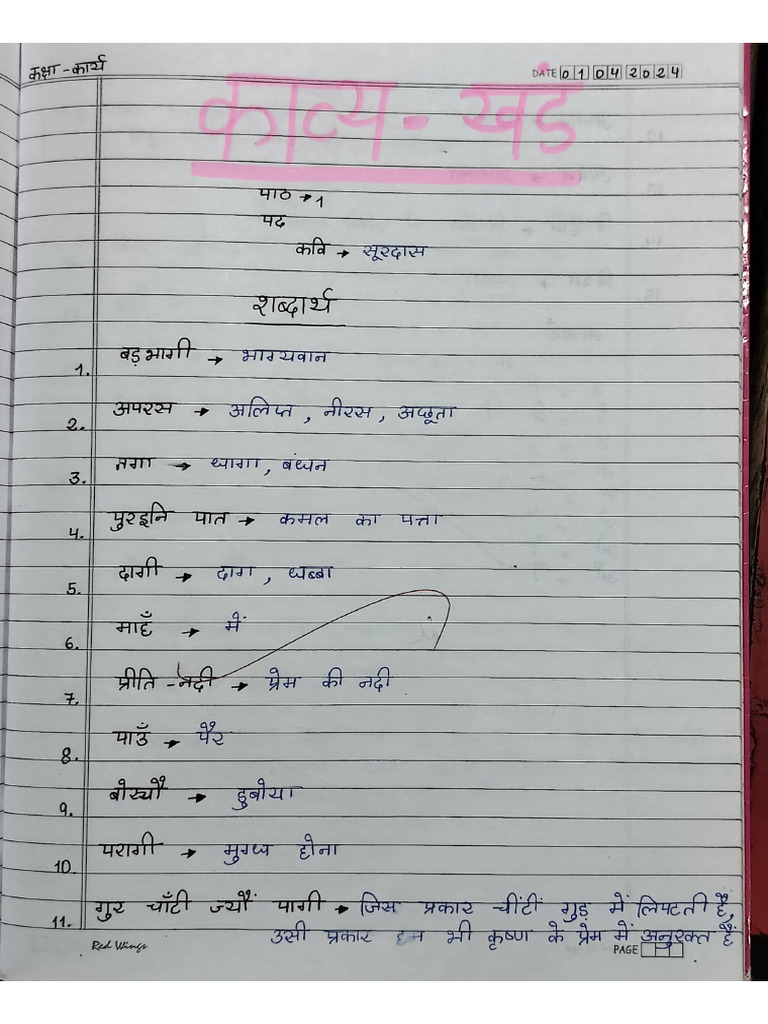 कक्षा - कार्य
DATE 01 04 2024
काव्य - खंड
पाठ → 1
पद
कवि → सूरदास
शब्दार्थ
1. बड़भागी → भाग्यवान
2. अपरस → अलिप्त , नीरस , अछूता
3. तगा → धागा , बंधन
4. पुरइनि पात → कमल का पत्ता
5. दागी → दाग , धब्बा
6. माहँ → में
7. प्रीति - नदी → प्रेम की नदी
8. पाउँ → पैर
9. बोर्यौ → डुबोया
10. परागी → मुग्ध होना
11. गुर चाँटी ज्यौं पागी → जिस प्रकार चींटीं गुड़ में लिपटती है,
उसी प्रकार हम भी कृष्ण के प्रेम में अनुरक्त हैं
Red Wings
PAGE